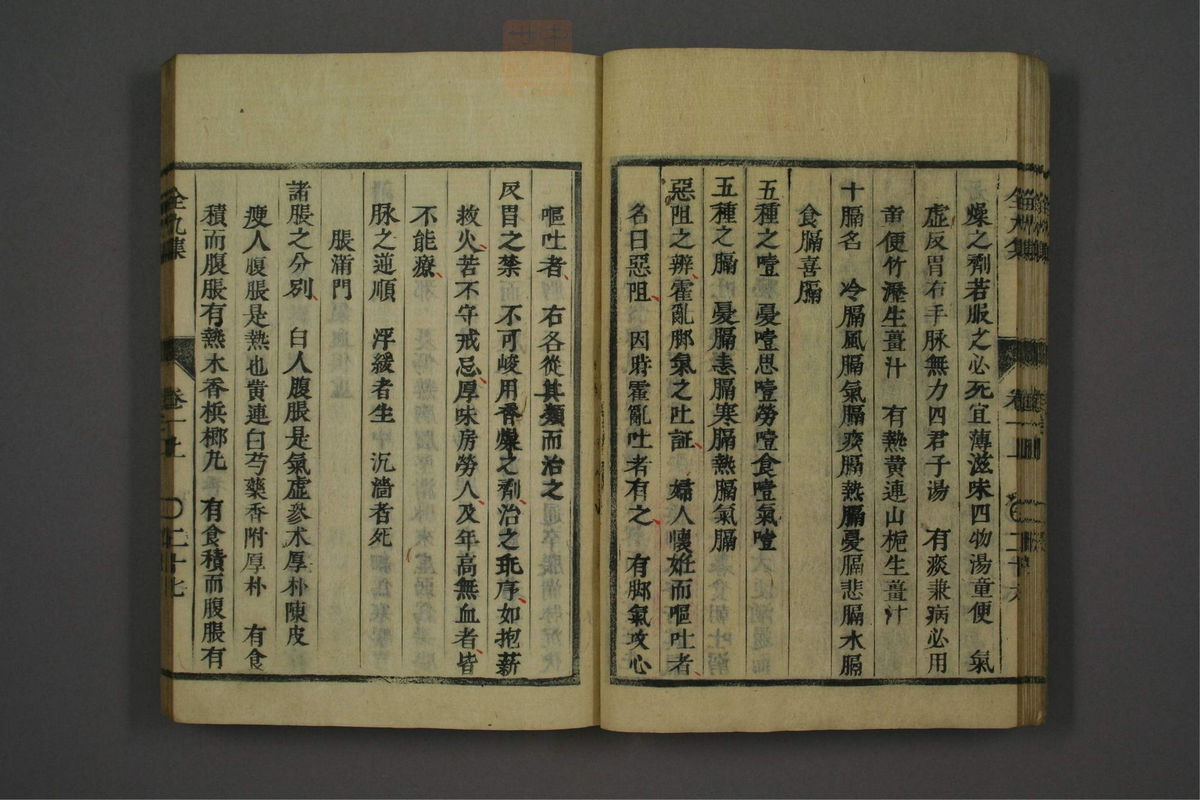 燥之劑若服之必死宜薄滋味四物湯童便　氣
虛反胃右手脉無力四君子湯　有痰兼病必用
童便竹瀝生薑汁　有熱黄連山栀生薑汁
十膈名　冷膈風膈氣膈痰膈熱膈憂膈悲膈水膈
食膈喜膈
五種之噎　憂噎思噎勞噎食噎氣噎
五種之膈　憂膈恚膈寒膈熱膈氣膈
惡阻之辨霍亂脚氣之吐証　婦人懷姙而嘔吐者
名曰惡阻　因時霍亂吐者有之　有脚氣攻心
嘔吐者　右各從其類而治之
反胃之禁　不可峻用香燥之劑治之乖序如抱薪
救火苦不守戒忌厚味房勞人及年高無血者皆
不能療
脉之逆順　浮緩者生　沉濇者死
脹滿門
諸脹之分別　白人腹脹是氣虛參朮厚朴陳皮
瘦人腹脹是熱也黄連白芍藥香附厚朴　有食
積而腹脹有熱木香檳榔丸　有食積而腹脹有
全九集
卷一上
二十六
全九集
卷一上
二十七